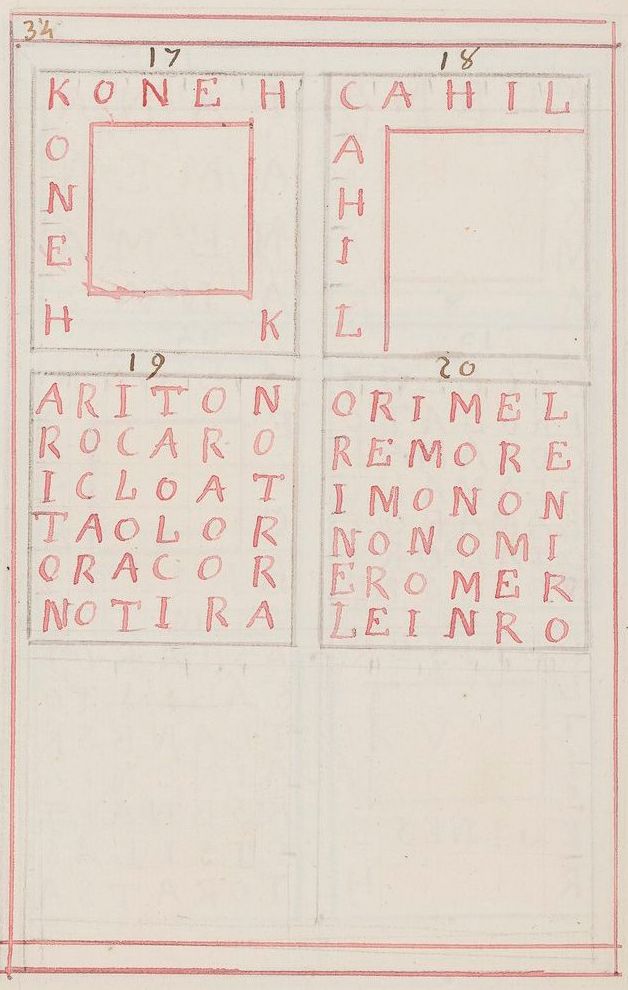 34
17
K O N E H
O
N
E
H K
18
C A H I L
A
H
I
L
19
A R I T O N
R O C A R O
I C L O A T
T A O L O R
O R A C O R
N O T I R A
20
O R I M E L
R E M O R E
I M O N O N
N O N O M I
E R O M E R
L E I N R O